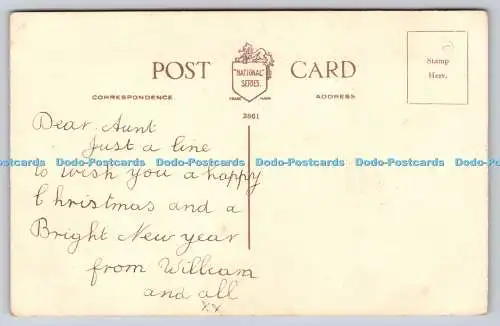 POST CARD
"NATIONAL"
SERIES.
TRADE MARK
CORRESPONDENCE.
ADDRESS
Stamp
Here.
3861
Dear Aunt
Just a line
to wish you a happy
Christmas and a
Bright New year
from William
and all
xx
Dodo-Postcards Dodo-Postcards Dodo-Postcards Dodo-Postcards Dodo-Postcards Dodo-Postcards